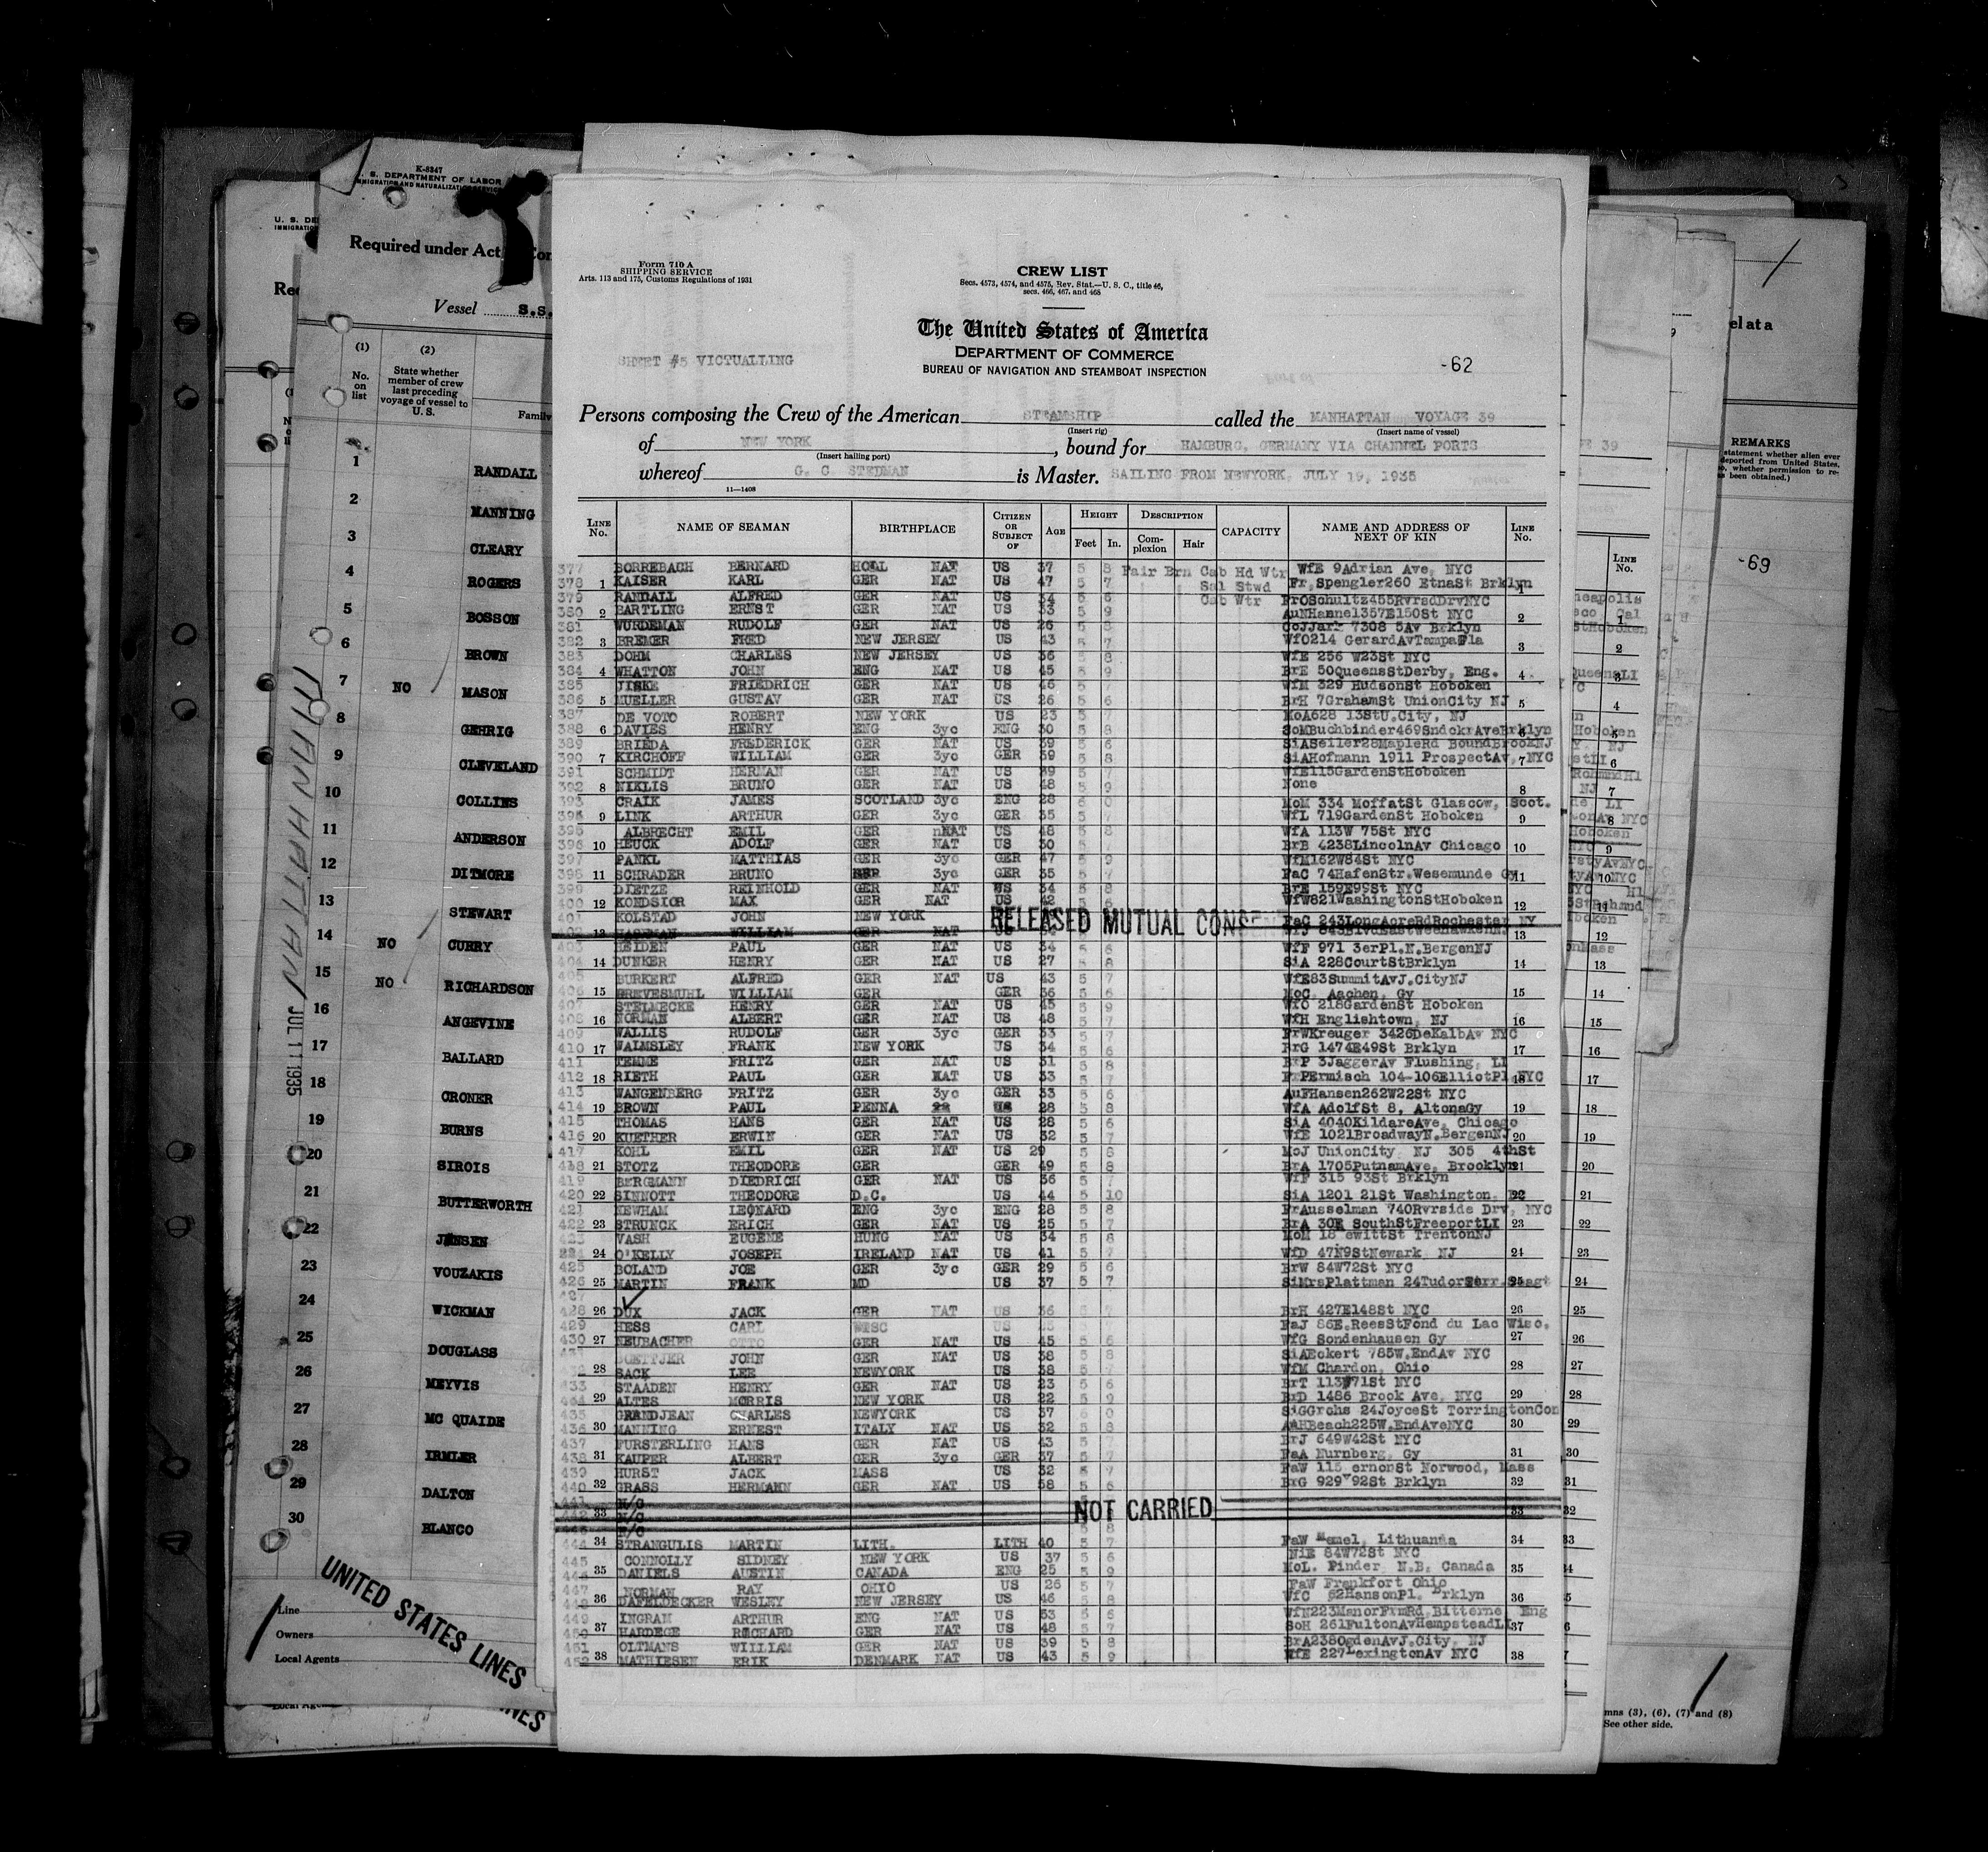 K-8347
U. S. DEPARTMENT OF LABOR
IMMIGRATION AND NATURALIZATION SERVICE
Required under Act
Vessel S.S.
(1) (2)
No. on list
State whether member of crew last preceding voyage of vessel to U. S.
Family
1 RANDALL
2 MANNING
3 CLEARY
4 ROGERS
5 BOSSON
6 BROWN
7 NO MASON
8 GEHRIG
9 CLEVELAND
10 COLLINS
11 ANDERSON
12 DITMORE
13 STEWART
14 NO CURRY
15 NO RICHARDSON
16 ANGEVINE
17 BALLARD
18 CRONER
19 BURNS
20 SIROIS
21 BUTTERWORTH
22 JENSEN
23 VOUZAKIS
24 WICKMAN
25 DOUGLASS
26 MEYVIS
27 MC QUAIDE
28 IRMLER
29 DALTON
30 BLANCO
MANHATTAN JUL 11 1935
Line
Owners
Local Agents
UNITED STATES LINES
Form 710 A
SHIPPING SERVICE
Arts. 113 and 175, Customs Regulations of 1931
CREW LIST
Secs. 4573, 4574, and 4575, Rev. Stat.—U. S. C., title 46,
secs. 466, 467, and 468
The United States of America
DEPARTMENT OF COMMERCE
BUREAU OF NAVIGATION AND STEAMBOAT INSPECTION
SHEET #5 VICTUALLING
-62
Persons composing the Crew of the American STEAMSHIP called the MANHATTAN VOYAGE 39
(Insert rig) (Insert name of vessel)
of NEW YORK, bound for HAMBURG, GERMANY VIA CHANNEL PORTS
(Insert hailing port)
whereof G. C. STEDMAN is Master. SAILING FROM NEWYORK, JULY 19, 1935
11—1408
LINE No. NAME OF SEAMAN BIRTHPLACE CITIZEN OR SUBJECT OF AGE HEIGHT Feet In. DESCRIPTION Complexion Hair CAPACITY NAME AND ADDRESS OF NEXT OF KIN LINE No.
377 BORREBACH BERNARD HOLL NAT US 37 5 8 Fair Brn Cab Hd Wtr WfE 9Adrian Ave, NYC
378 1 KAISER KARL GER NAT US 47 5 7 Sal Stwd Fr Spengler260 EtnaSt Brklyn 1
379 RANDALL ALFRED GER NAT US 34 5 6 Cab Wtr FrOSchultz455RvrsdDrvNYC
380 2 BARTLING ERNST GER NAT US 33 5 9 AuNHannel357E150St NYC 2
381 WURDEMAN RUDOLF GER NAT US 26 5 8 7308 5Av Brklyn
382 3 BREMER FRED NEW JERSEY US 43 5 7 WfO214 GerardAvTampaFla 3
383 DOHM CHARLES NEW JERSEY US 36 5 8 WfE 256 W23St NYC
384 4 WHATTON JOHN ENG NAT US 45 5 9 BrE 50QueensStDerby, Eng. 4
385 FRIEDRICH GER NAT US 46 5 7 WfM 329 HudsonSt Hoboken
386 5 MUELLER GUSTAV GER NAT US 26 5 6 BrH 7GrahamSt UnionCity NJ 5
387 DE VOTO ROBERT NEW YORK US 23 5 7 MoA628 13StU.City, NJ
388 6 DAVIES HENRY ENG 3yc ENG 30 5 8 6
389 BRIEDA FREDERICK GER NAT US 39 5 6 SiASeiler28MapleRd BoundBrookNJ
390 7 KIRCHOFF WILLIAM GER 3yc GER 39 5 8 SiAHofmann 1911 ProspectAv, NYC 7
391 SCHMIDT HERMAN GER NAT US 39 5 7 WfE115GardenStHoboken
392 8 NIKLIS BRUNO GER NAT US 48 5 9 None 8
393 CRAIK JAMES SCOTLAND 3yc ENG 28 6 0 MoM 334 MoffatSt Glascow, Scot.
395 9 LINK ARTHUR GER 3yc GER 35 5 7 WfL 719GardenSt Hoboken 9
395 ALBRECHT EMIL GER NAT US 48 5 8 WfA 113W 75St NYC
396 10 HEUCK ADOLF GER NAT US 30 5 7 BrB 4238LincolnAv Chicago 10
397 PANKL MATTHIAS GER 3yc GER 47 5 9 WfM162W84St NYC
398 11 SCHRADER BRUNO 3yc GER 35 5 7 FaC 74HafenStr.Wesemunde Gy 11
399 DIETZE REINHOLD GER NAT US 34 5 8 BrE 159E99St NYC
400 12 KONDSIOR MAX GER NAT US 42 5 6 WfW821WashingtonStHoboken 12
401 KOLSTAD JOHN NEW YORK FaC 243LongAcreRdRochester NY
RELEASED MUTUAL CONSENT
13 WILLIAM GER NAT 13
403 HEIDEN PAUL GER NAT US 34 5 8 WfF 971 3erPl.N.BergenNJ
404 14 DUNKER HENRY GER NAT US 27 5 8 SiA 228CourtStBrklyn 14
405 BURKERT ALFRED GER NAT US 43 5 7 WfE83SummitAvJ.CityNJ
406 15 GREVESMUHL WILLIAM GER GER 36 5 6 MoC, Aachen, Gy 15
407 STELMECKE HENRY GER NAT US 45 5 9 WfC 218GardenSt Hoboken
408 16 NORMAN ALBERT GER NAT US 48 5 7 WfH Englishtown, NJ 16
409 WALLIS RUDOLF GER 3yc GER 33 5 7 FrWKreuger 3426DeKalbAv NYC
410 17 WALMSLEY FRANK NEW YORK US 34 5 6 BrG 1474E49St Brklyn 17
411 TEMME FRITZ GER NAT US 31 5 8 BrP 3JaggerAv Flushing, LI
412 18 RIETH PAUL GER NAT US 33 5 7 FrPErmisch 104-106ElliotPl NYC 18
413 WANGENBERG FRITZ GER 3yc GER 33 5 6 AuFHansen262W22St NYC
414 19 BROWN PAUL PENNA US 28 5 8 WfA AdolfSt 8, AltonaGy 19
415 THOMAS HANS GER NAT US 28 5 6 SiA 4040KildareAve, Chicago
416 20 KUETHER ERWIN GER NAT US 32 5 7 WfE 1021BroadwayN.BergenNJ 20
417 KOHL EMIL GER NAT US 29 5 8 MoJ UnionCity NJ 305 4thSt
418 21 STOTZ THEODORE GER GER 49 5 8 BrA 1705PutnamAve, Brooklyn 21
419 BERGMANN DIEDRICH GER NAT US 36 5 7 WfF 315 93St Brklyn
420 22 SINNOTT THEODORE D.C. US 44 5 10 SiA 1201 21St Washington, 22
421 NEWHAM LEONARD ENG 3yc ENG 28 5 8 FrAusselman 740Rvrside Drv, NYC
422 23 STRUNCK ERICH GER NAT US 25 5 7 BrA 30E SouthStFreeportLI 23
423 VASH EUGENE HUNG NAT US 34 5 8 MoM 18 ewittSt TrentonNJ
424 24 O'KELLY JOSEPH IRELAND NAT US 41 5 7 WfD 47N9StNewark, NJ 24
425 BOLAND JOE GER 3yc GER 29 5 6 BrW 84W72St NYC
426 25 MARTIN FRANK MD US 37 5 7 SiMrsPlattman 24Tudor 25
427
428 26 DUX JACK GER NAT US 36 5 7 BrH 427E148St NYC 26
429 HESS CARL WISC US FaJ 86E.ReesStFond du Lac Wisc.
430 27 NEUBACHER OTTO GER NAT US 45 5 6 WfG Sondenhausen Gy 27
BOETTJER JOHN GER NAT US 38 5 8 SiAEckert 785W.EndAv NYC
432 28 SACK LEE NEWYORK US 38 5 7 WfM Chardon, Ohio 28
433 STAADEN HENRY GER NAT US 23 5 6 BrT 113W71St NYC
434 29 ALTES MORRIS NEW YORK US 22 5 9 BrD 1486 Brook Ave, NYC 29
435 GRANDJEAN CHARLES NEWYORK US 37 6 0 SiGGrohs 24JoyceSt TorringtonCon
436 30 MANNING ERNEST ITALY NAT US 32 5 8 AAHBeach225W.EndAveNYC 30
437 FURSTERLING HANS GER NAT US 43 5 7 BrJ 649W42St NYC
438 31 KAUPER ALBERT GER 3yc GER 37 5 7 FaA Nurnberg, Gy 31
439 HURST JACK MASS US 32 5 7 FaW 115 ernonSt Norwood, Mass
440 32 GRASS HERMANN GER NAT US 58 5 6 BrG 929 92St Brklyn 32
441 N/C
442 33 N/C NOT CARRIED 33
N/C 5 8
444 34 STRANGULIS MARTIN LITH. LITH 40 5 7 FaW Memel, Lithuania 34
445 CONNOLLY SIDNEY NEW YORK US 37 5 6 NiE 84W72St NYC
35 DANIELS AUSTIN CANADA ENG 25 5 9 MoL. Pinder, N.B. Canada 35
447 NORMAN RAY OHIO US 26 5 7 FaW Frankfort Ohio
448 36 DAFELDECKER WESLEY NEW JERSEY US 46 5 8 WfC 62HansonPl. Brklyn 36
449 INGRAM ARTHUR ENG NAT US 53 5 6 WfN223ManorFrmRd,Bitterne, Eng
450 37 HARDEGE RICHARD GER NAT US 48 5 7 SoH 261FultonAvHempsteadLI 37
451 OLTMANS WILLIAM GER NAT US 39 5 8 BrA238OgdenAvJ.City, NJ
452 38 MATHIESEN ERIK DENMARK NAT US 43 5 9 WfE 227LexingtonAv NYC 38
REMARKS
-69
LINE No.
See other side.